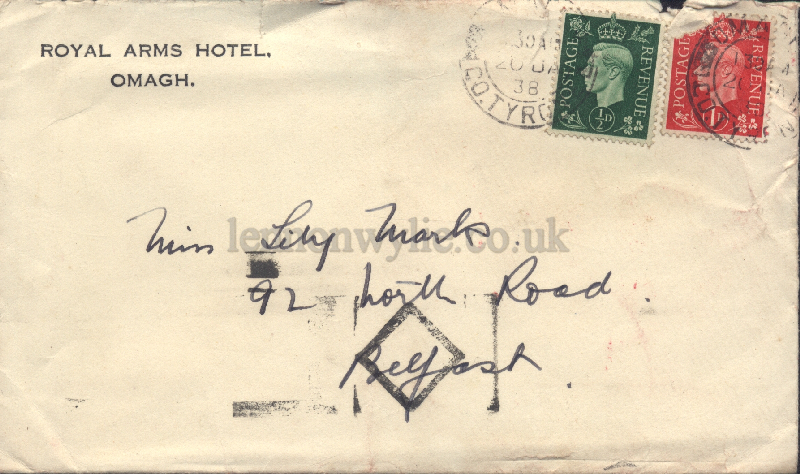 ROYAL ARMS HOTEL,
OMAGH.
30AM
20 JA
38
CO. TYRO
POSTAGE REVENUE
½D
POSTAGE REVENUE
1D
Miss Lily Marks.
lennonwylie.co.uk
92 North Road.
Belfast.